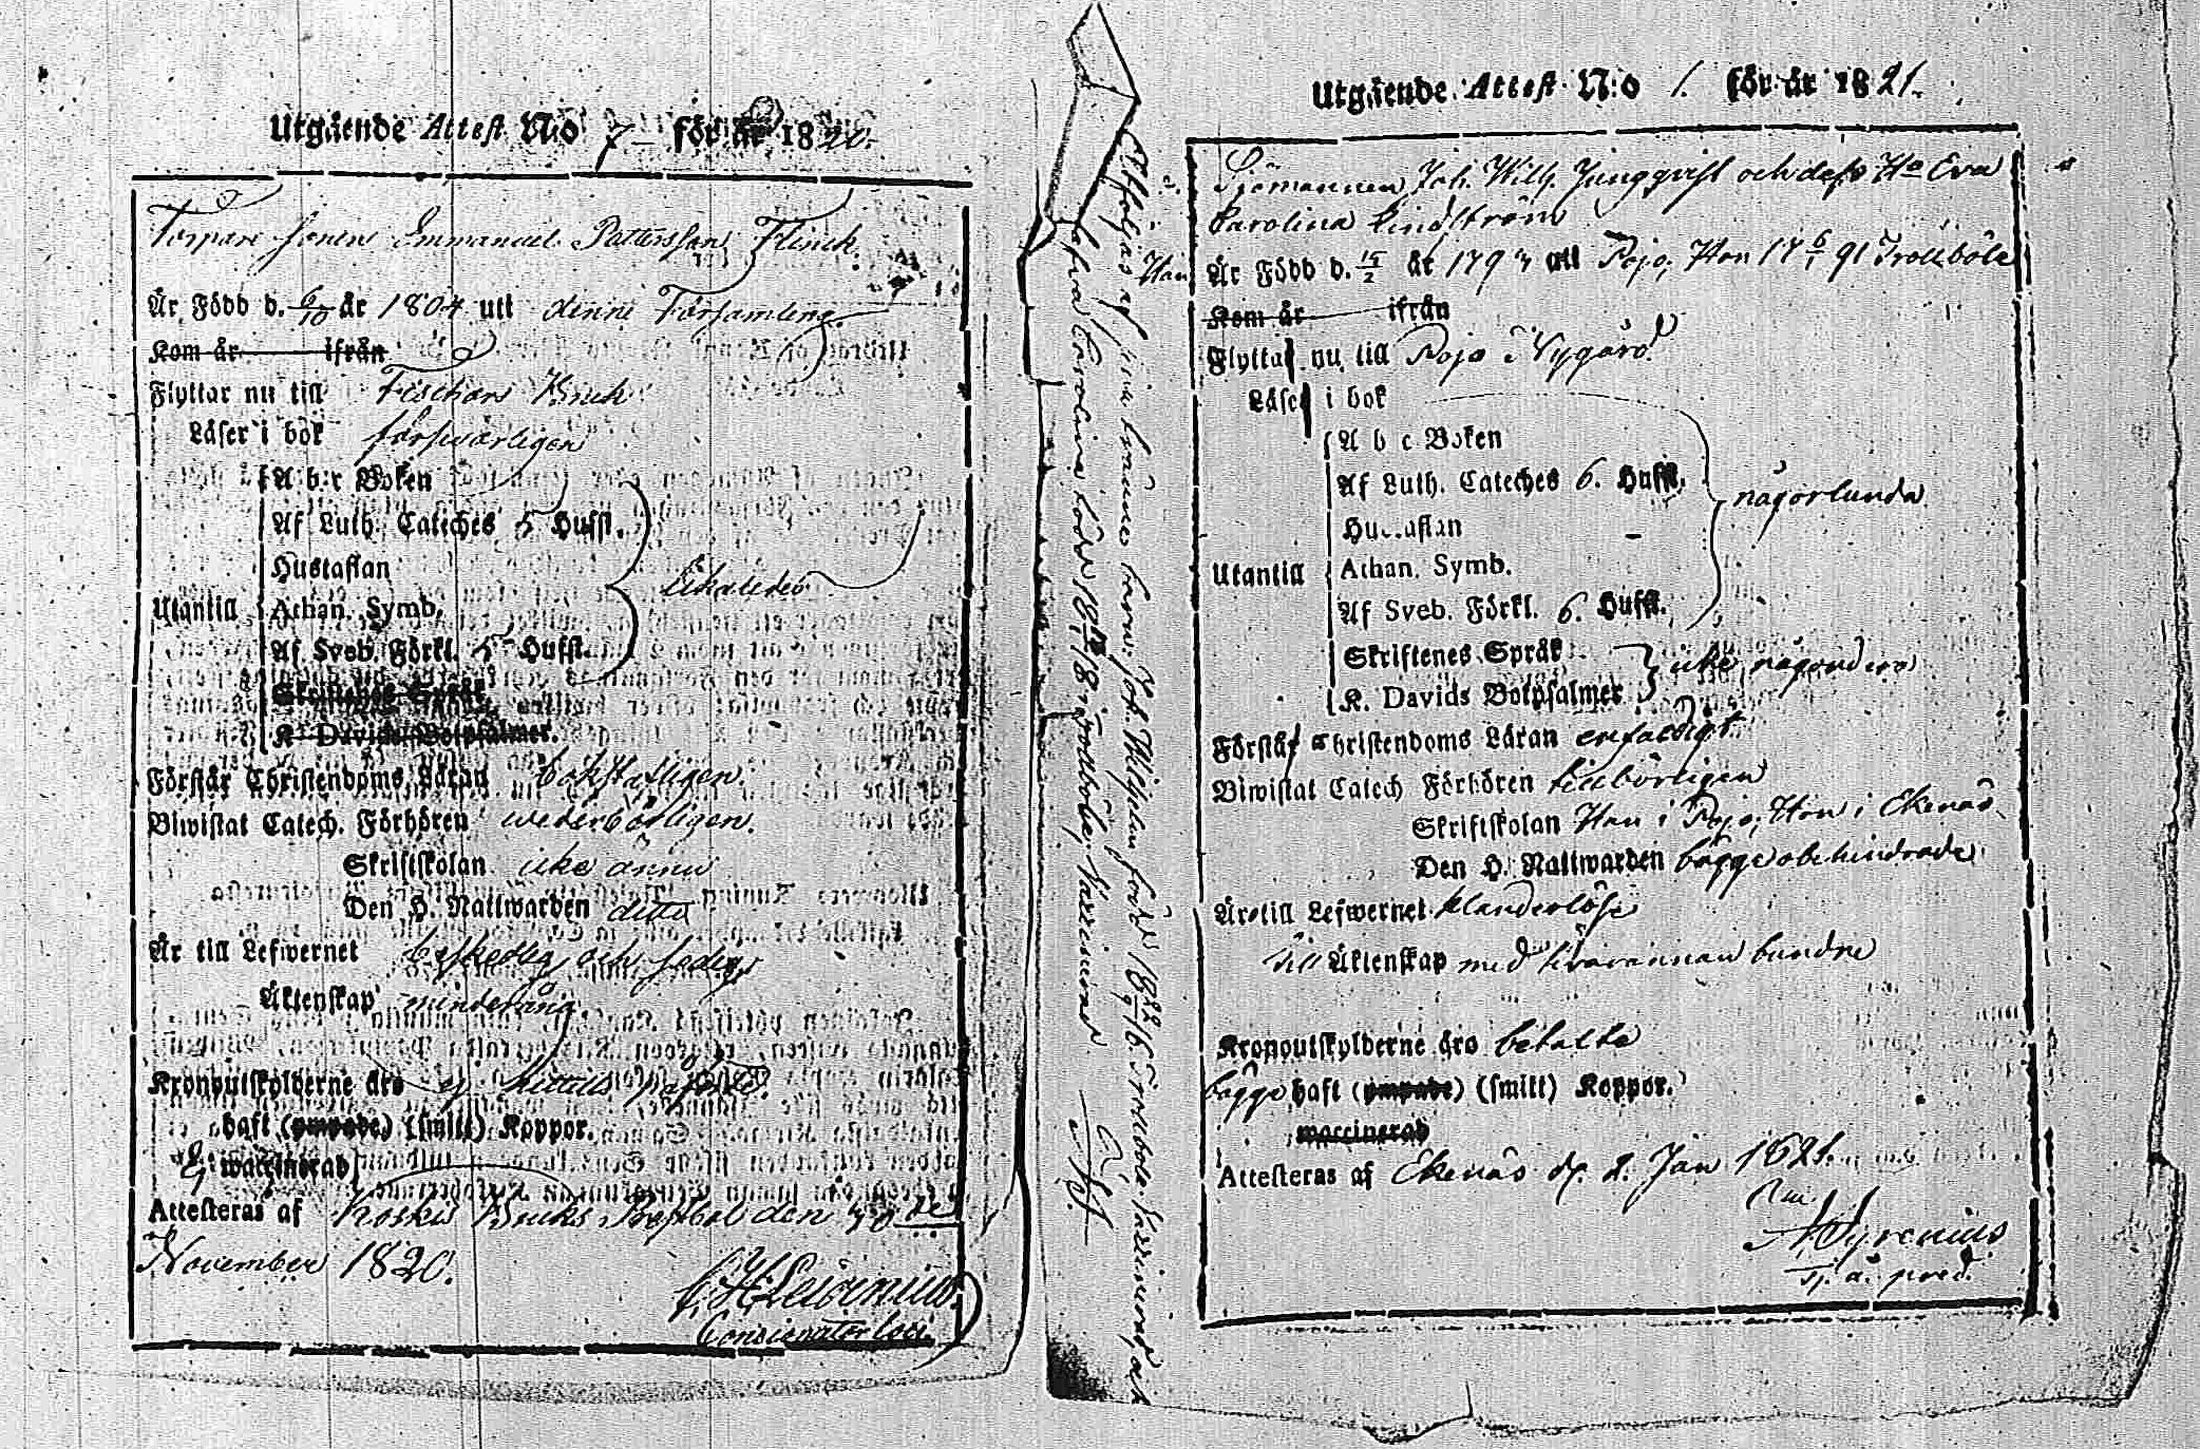 Utgående Attest N:o 7 för år 1820.
Torpare sonen Emmanuel Pettersson Flinck.
Är Född d. 6/10 år 1804 uti denne Församling.
Kom år ifrån
Flyttar nu till Fischars Bruk
Läser i bok försvarligen
A b c Boken
Af Luth. Cateches 5 Hufst.
Hustaflan
Utantill Athan. Symb.
Af Sveb. Förkl. 5 Hufst.
likaledes
Skriftenes Språk
K. Davids Botpsalmer.
Förstår Christendoms Läran bokstafligen
Biwistat Catech. Förhören wederbörligen.
Skriftskolan icke ännu
Den H. Nattwarden ditto
Är till Lefwernet beskedlig och sedig
Äktenskap minderårig
Kronoutskylderne äro ej hittills påförde.
haft (ympade) (smitt) Koppor.
Ej waccinerad
Attesteras af Koskis Bruks Prestbol den 30de
November 1820.
Concionator loci.
Utgående Attest N:o 1. för år 1821.
Sjömannen Joh. Wilh. Jungqvist och dess H:o Eva
Carolina Lindström
Han Är Född d. 15/2 år 1797 uti Pojo, Hon 17 6/1 91 Trollböle
Kom år ifrån
Flytta nu till Pojo Nygård
Läser i bok
A b c Boken
Af Luth. Cateches 6. Hufst.
Hustaflan
någorlunda
Utantill Athan. Symb.
Af Sveb. Förkl. 6. Hufst.
Skriftenes Språk
icke någondera
K. Davids Botpsalmer
Förstå Christendoms Läran enfaldigt
Biwistat Catech Förhören tillbörligen
Skriftskolan Han i Pojo, Hon i Ekenäs
Den H. Nattwarden bägge obehindrade
Äro till Lefwernet klanderlöse
Till Äktenskap med hvarannan bundne
Kronoutskylderne äro betalte
bägge haft (ympade) (smitt) Koppor.
waccinerad
Attesteras af Ekenäs d. 2. Jan 1821.
A Syrenius
Åtföljas af sina tvänne barn: Joh. Wilhelm född 18 16 i Trollböle, Vaccinerad, och
Eva Carolina född 18 18 i Trollböle, Vaccinerad